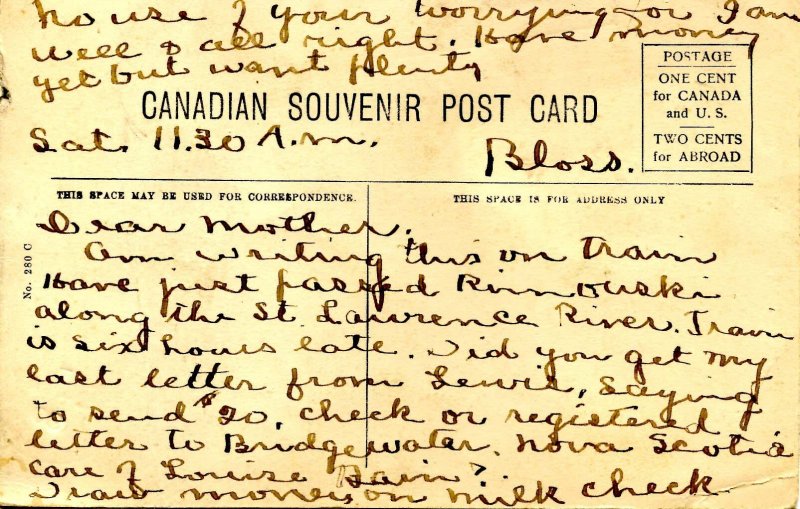 no use of your worrying for I am
well & all right. Have money
yet but want plenty
CANADIAN SOUVENIR POST CARD
POSTAGE
ONE CENT
for CANADA
and U. S.
TWO CENTS
for ABROAD
Sat. 11.30 A.m.
Bloss.
THIS SPACE MAY BE USED FOR CORRESPONDENCE.
THIS SPACE IS FOR ADDRESS ONLY
No. 280 C
Dear Mother.
Am writing this on train
Have just passed Rimouski
along the St. Lawrence River. Train
is six hours late. Did you get my
last letter from Lewis, saying
to send $20. check or registered
letter to Bridgewater. Nova Scotia
care of Louise
Draw money on milk check